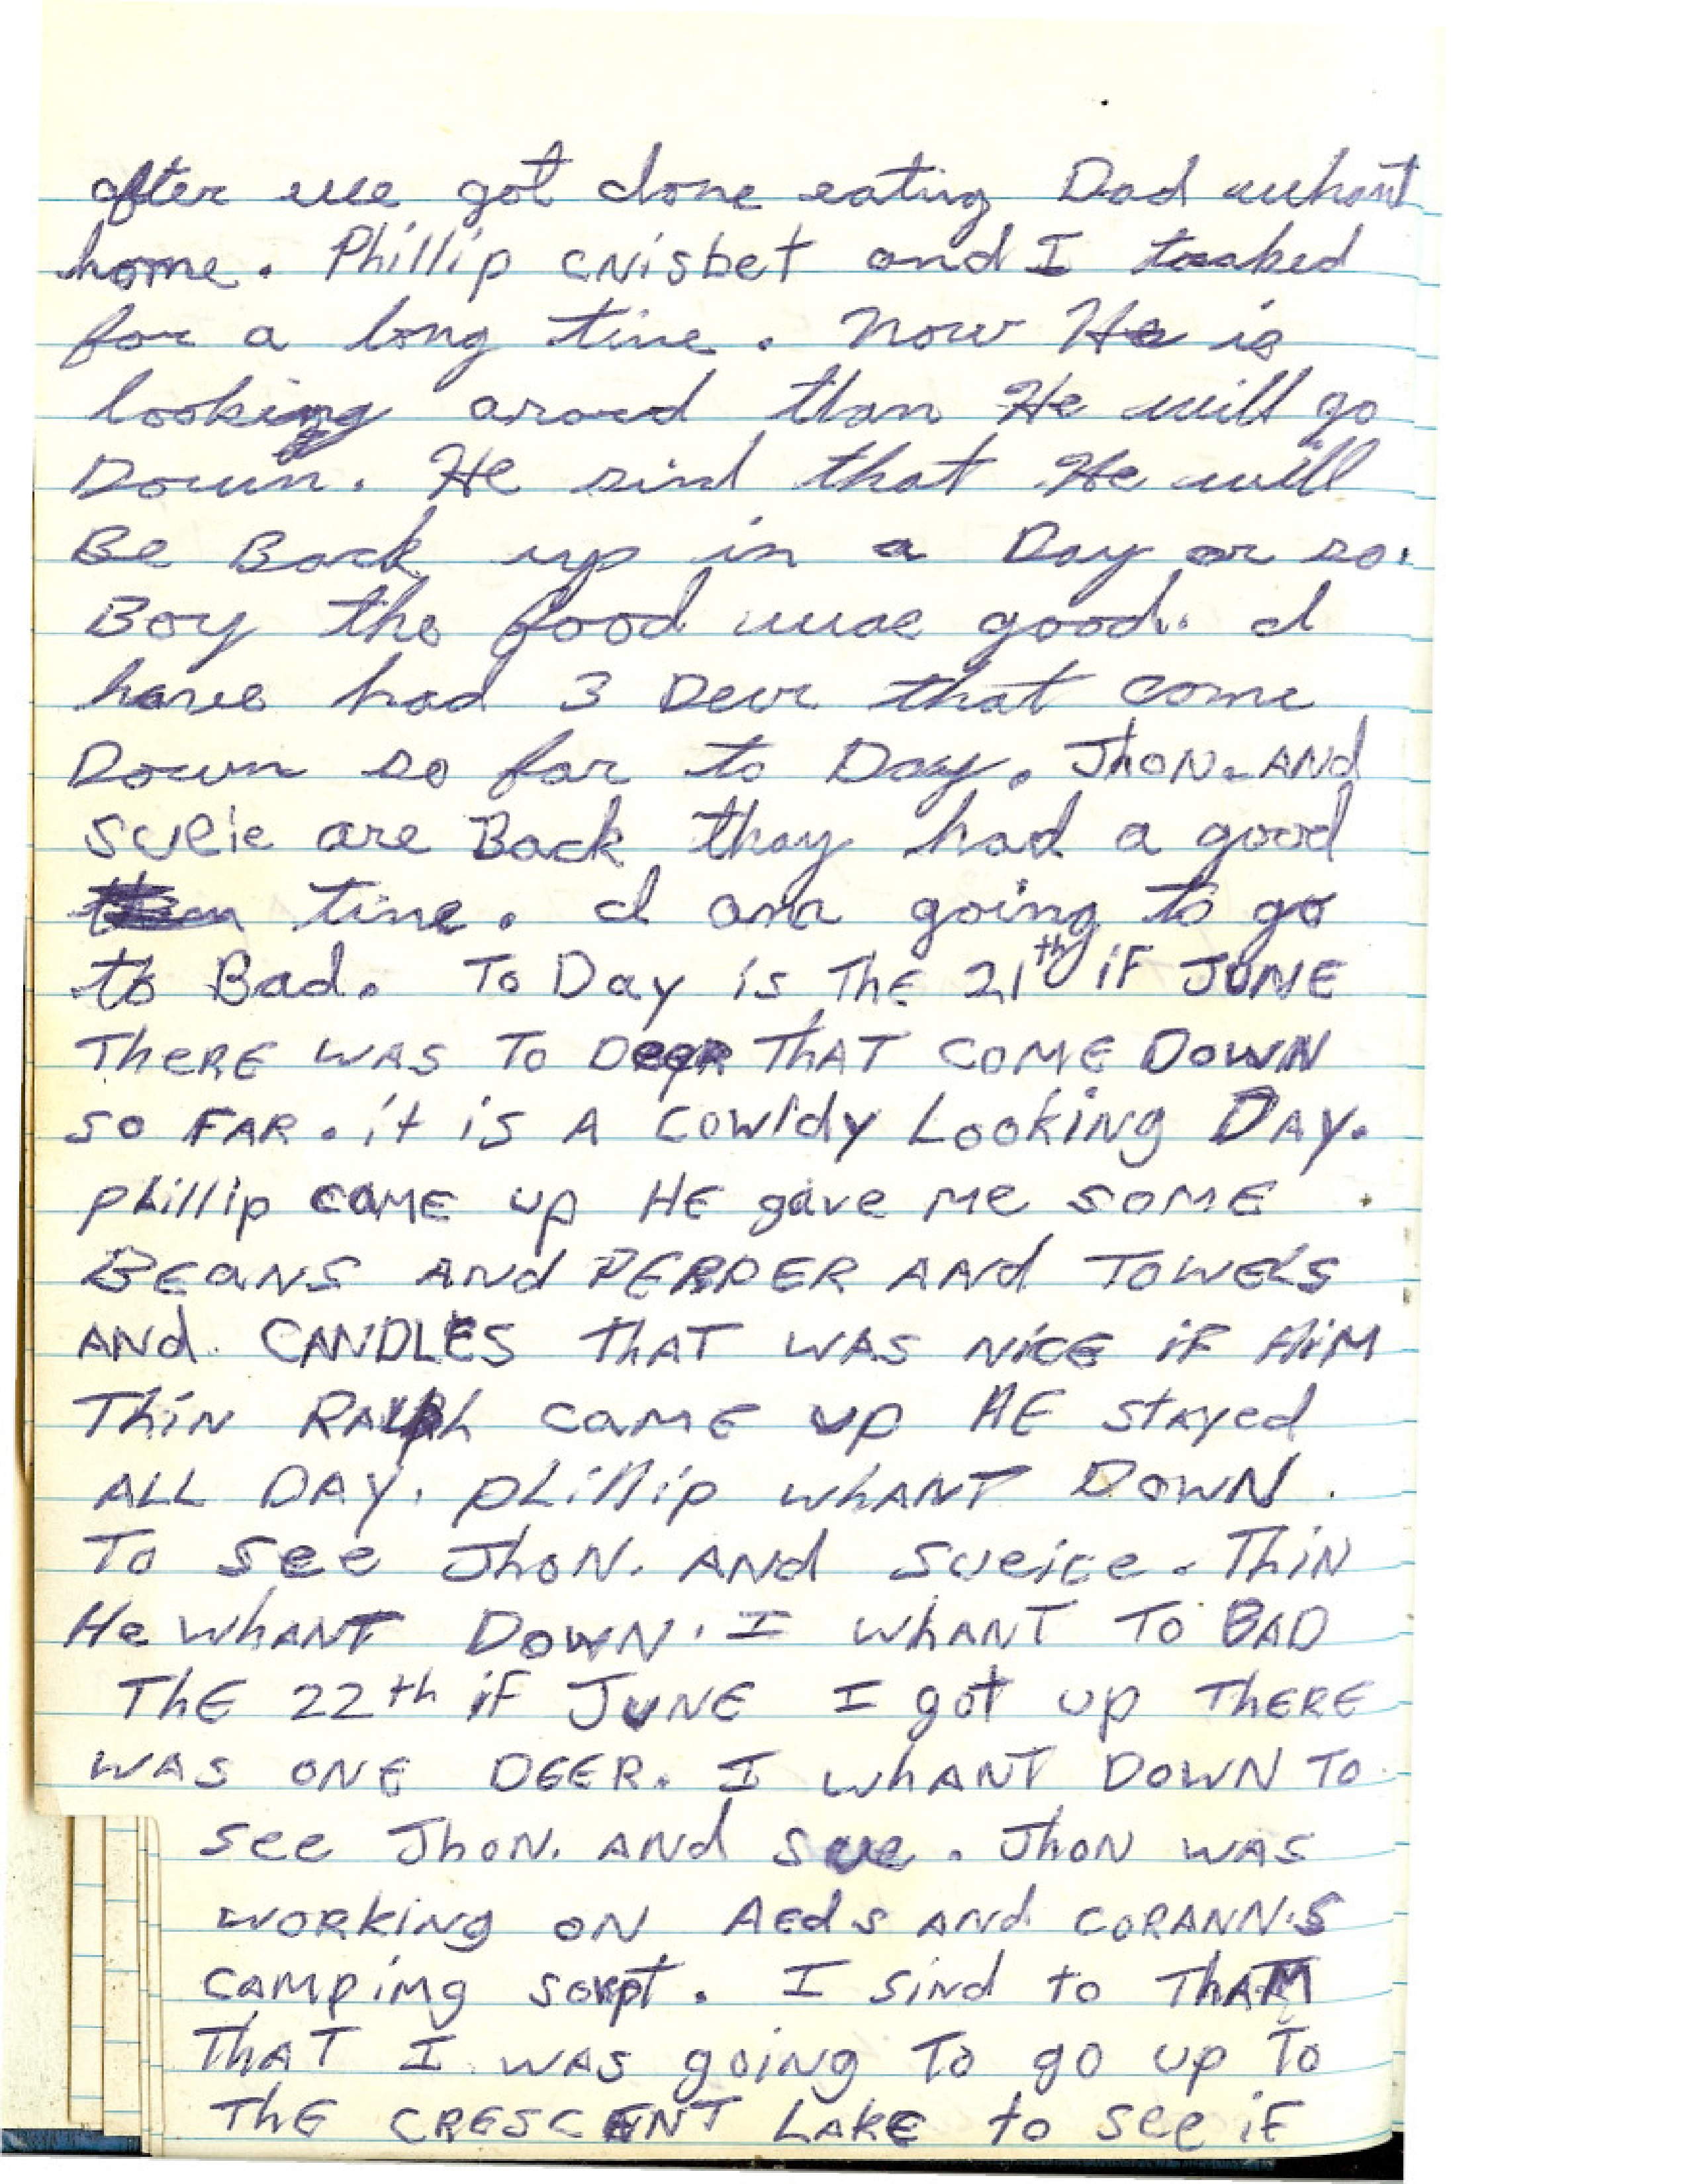 after we got done eating Dad whant
home. Phillip cNisbet and I toaked
for a long tine. Now He is
looking aroud than He will go
Down. He sind that He will
Be Back up in a Day or so.
Boy the food wuae good. I
have had 3 Deer that come
Down so far to Day. JhoN. ANd
Sueie are Back thay had a good
tine. I am going to go
to Bad. To Day is ThE 21th iF JUNE
TheRE WAS TO DeeR ThAT COME DOWN
SO FAR. it is A COWldy LOOKiNg DAY.
phillip CAME up HE gave Me SOME
BEaNS ANd PEPPER AAd TOWELS
ANd CANDLES ThAT WAS NiCE iF HiM
ThiN RALph CaME up HE stAyed
ALL DAY. phillip whANT DOWN.
To See JhoN. ANd Sueice. ThiN
He whANT DOWN. I whANT TO BAD
ThE 22th iF JUNE I got up ThERE
WAS ONE DEER. I whANT DOWN TO
See JhoN. ANd Sue. JhoN WAS
wORkiNg ON AEds ANd CORANN.S
CAMPiNg sorpt. I siNd to ThAM
ThAT I WAS goiNg To go up To
ThE CRESCENT LAKE to see iF